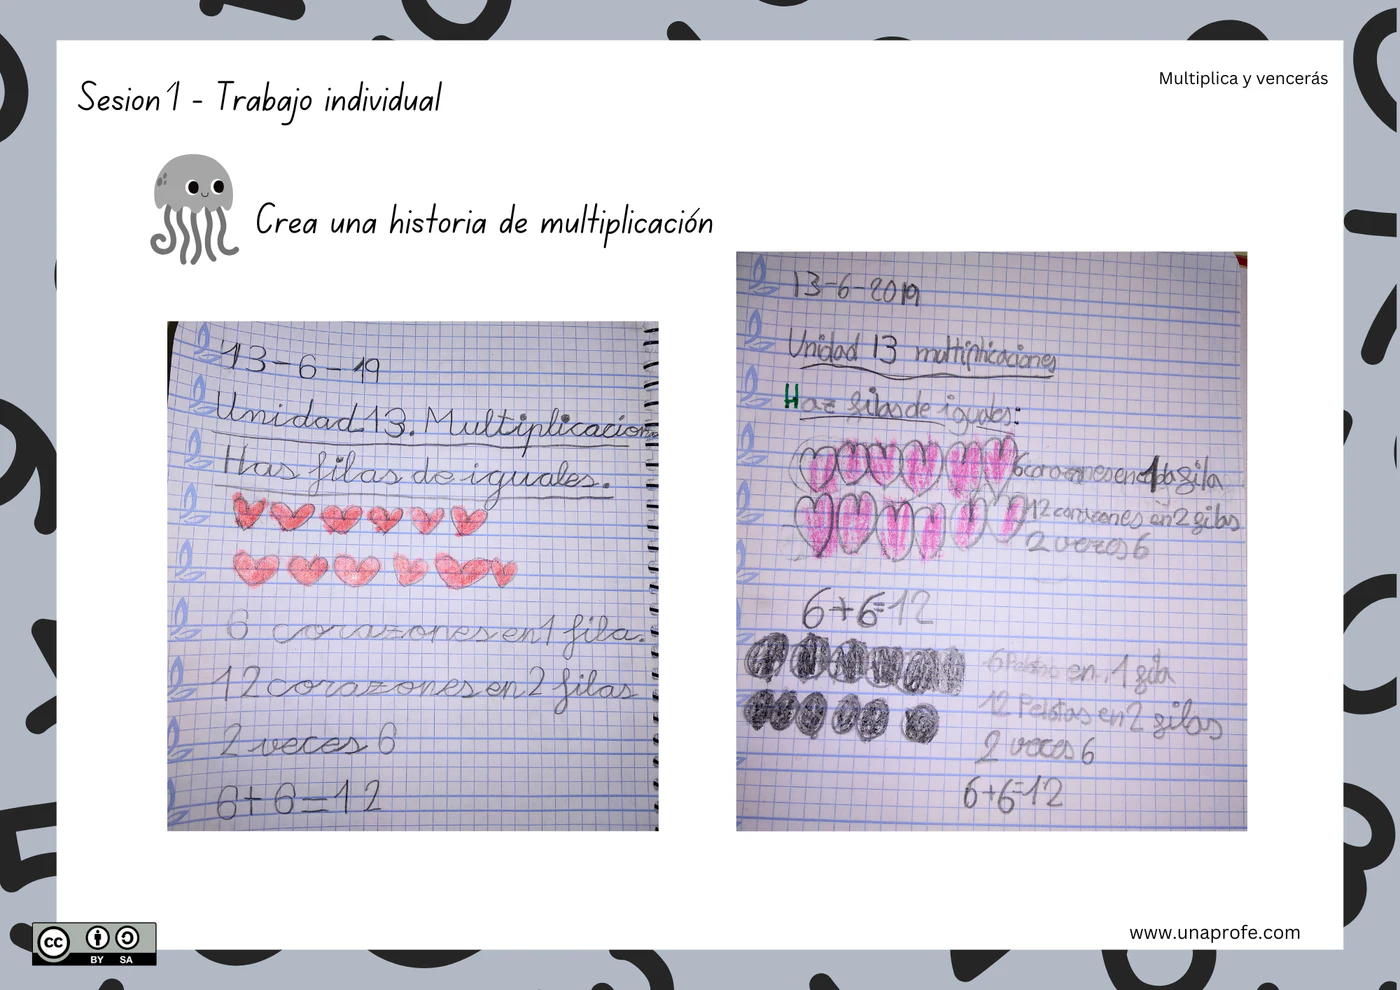 Sesion 1 - Trabajo individual
Multiplica y vencerás
Crea una historia de multiplicación
13-6-19
Unidad 13. Multiplicacion
Has filas de iguales.
6 corazones en 1 fila.
12 corazones en 2 filas
2 veces 6
6+6=12
13-6-2019
Unidad 13 multiplicaciones
Haz filas de iguales:
6 corazones en 1 fila
12 corazones en 2 filas
2 veces 6
6+6=12
6 Pelotas en 1 fila
12 Pelotas en 2 filas
2 veces 6
6+6=12
www.unaprofe.com
cc
BY SA